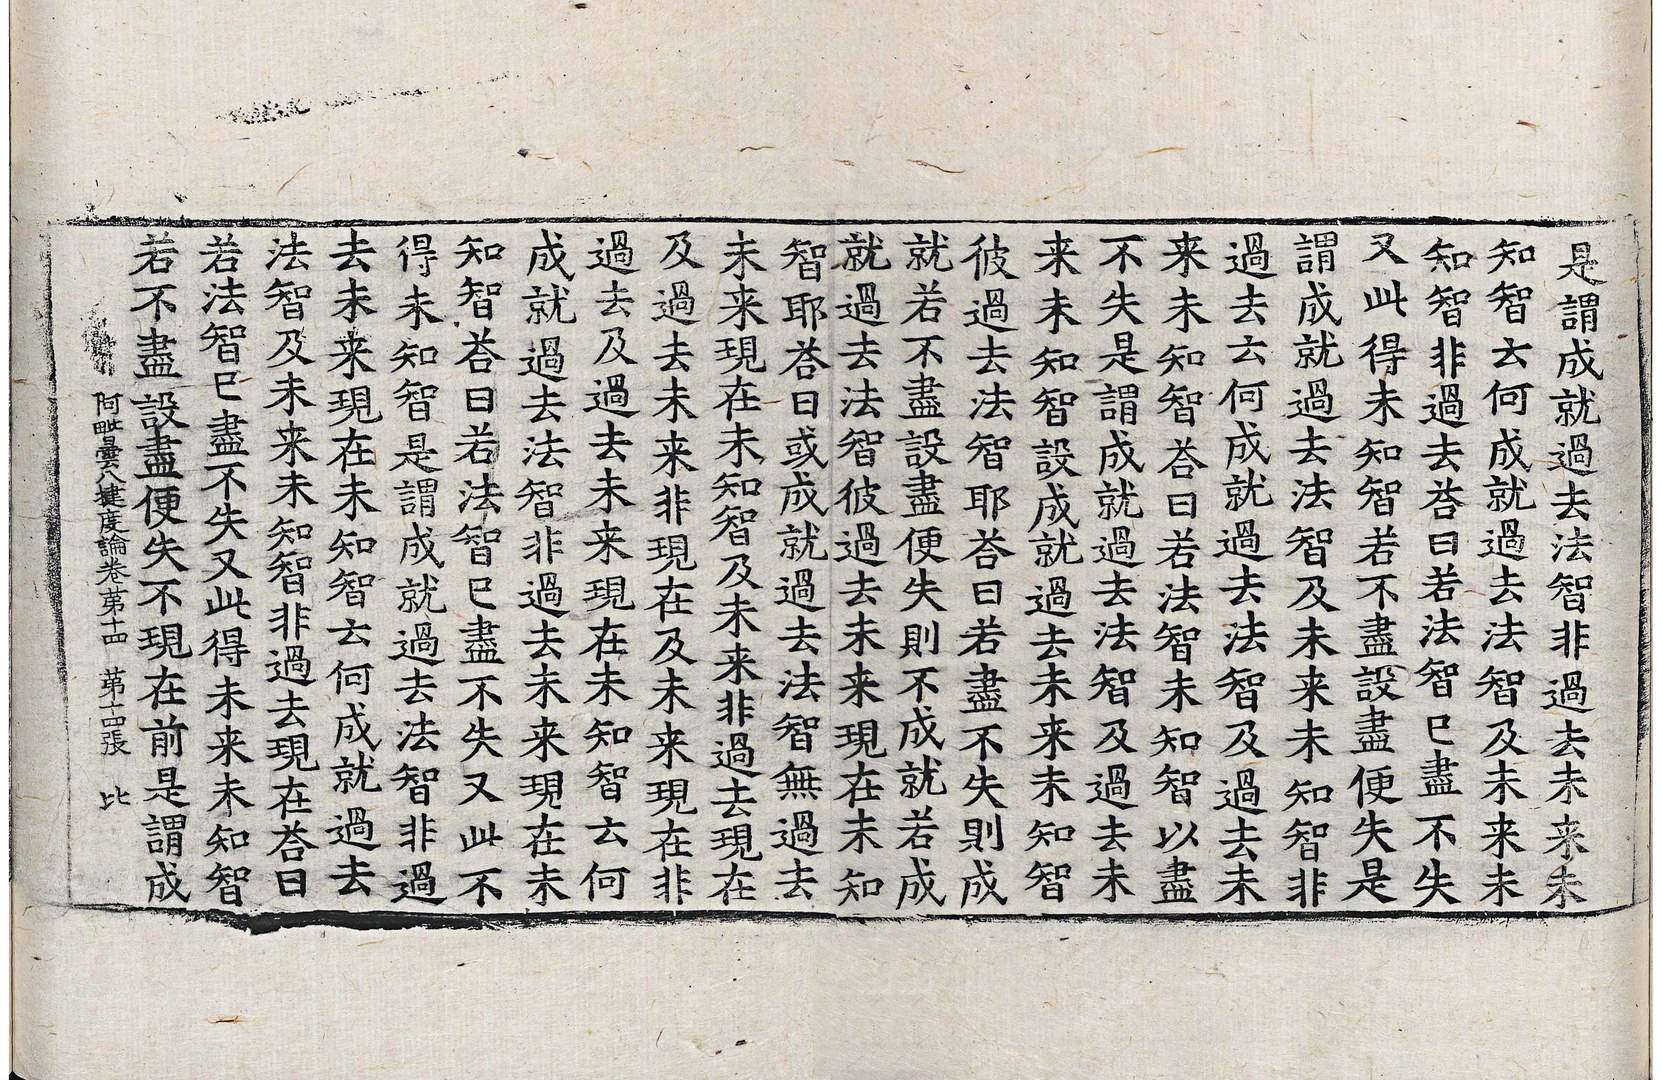 是謂成就過去法智非過去未来未
知智云何成就過去法智及未来未
知智非過去荅曰若法智已盡不失
又此得未知智若不盡設盡便失是
謂成就過去法智及未来未知智非
過去云何成就過去法智及過去未
来未知智荅曰若法智未知智以盡
不失是謂成就過去法智及過去未
来未知智設成就過去未来未知智
彼過去法智耶荅曰若盡不失則成
就若不盡設盡便失則不成就若成
就過去法智彼過去未来現在未知
智耶荅曰或成就過去法智無過去
未来現在未知智及未来非過去現在
及過去未来非現在及未来現在非
過去及過去未来現在未知智云何
成就過去法智非過去未来現在未
知智荅曰若法智已盡不失又此不
得未知智是謂成就過去法智非過
去未来現在未知智云何成就過去
法智及未来未知智非過去現在荅曰
若法智已盡不失又此得未来未知智
若不盡設盡便失不現在前是謂成
阿毗曇八揵度論卷第十四　第十四張　比